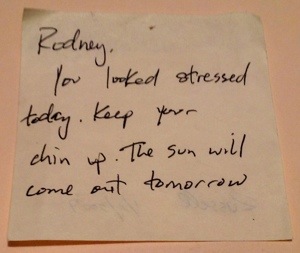 Rodney.
You looked stressed
today. Keep your
chin up. The sun will
come out tomorrow